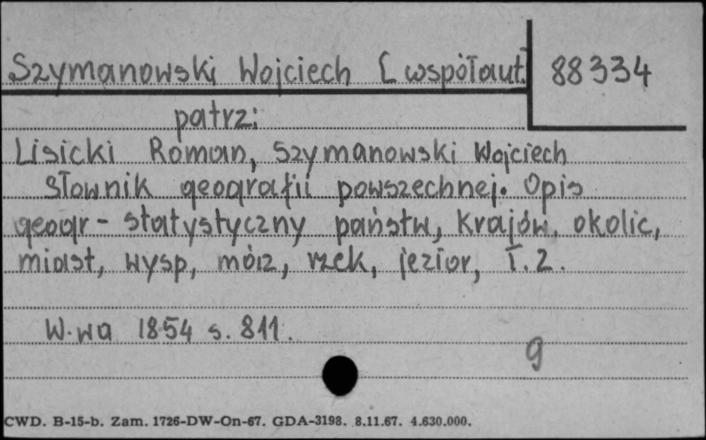 Szymanowski Wojciech [współaut] 88334
patrz:
Lisicki Roman, Szymanowski Wojciech
Słownik geografii powszechnej. Opis
geogr-statystyczny państw, krajów, okolic,
miast, wysp, mórz, rzek, jezior, T.2.
W-wa 1854 s. 811.
9
CWD. B-15-b. Zam. 1726-DW-On-67. GDA-3198. 8.11.67. 4.630.000.